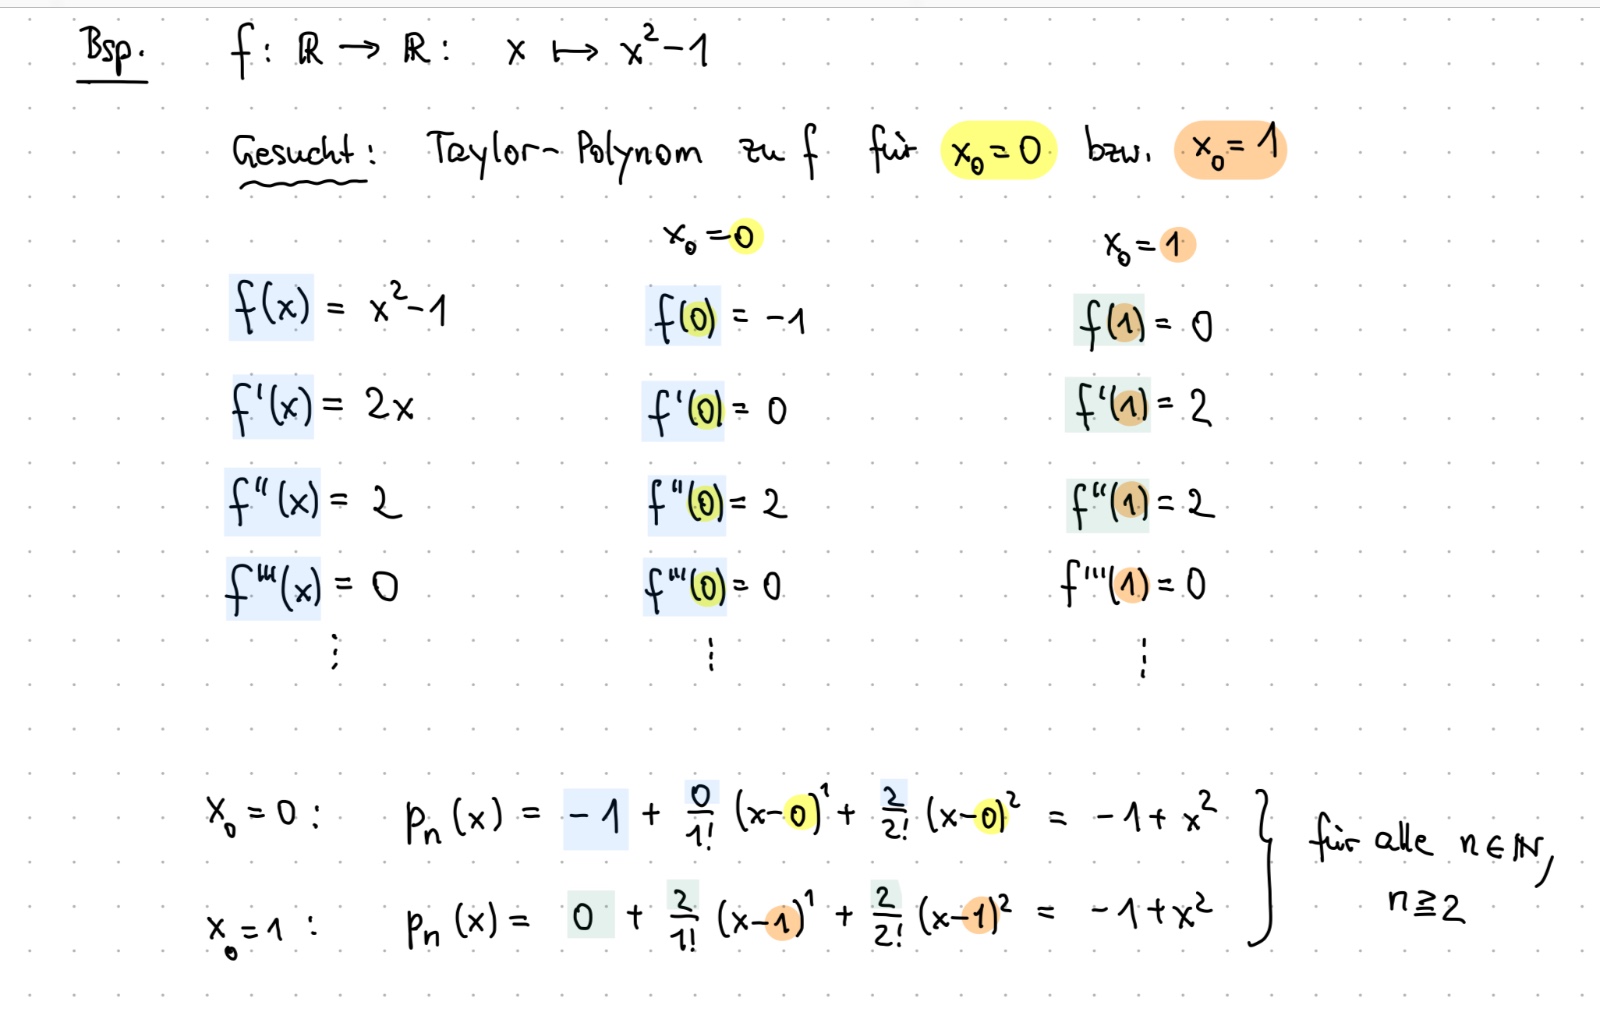 Bsp. f: ℝ → ℝ: x ↦ x²-1
Gesucht: Taylor-Polynom zu f für x₀=0 bzw. x₀=1
x₀=0 x₀=1
f(x) = x²-1 f(0) = -1 f(1) = 0
f'(x) = 2x f'(0) = 0 f'(1) = 2
f''(x) = 2 f''(0) = 2 f''(1) = 2
f'''(x) = 0 f'''(0) = 0 f'''(1) = 0
⋮ ⋮ ⋮
x₀=0: pₙ(x) = -1 + 0/1! (x-0)¹ + 2/2! (x-0)² = -1+x² } für alle n∈ℕ,
x₀=1: pₙ(x) = 0 + 2/1! (x-1)¹ + 2/2! (x-1)² = -1+x² n≧2